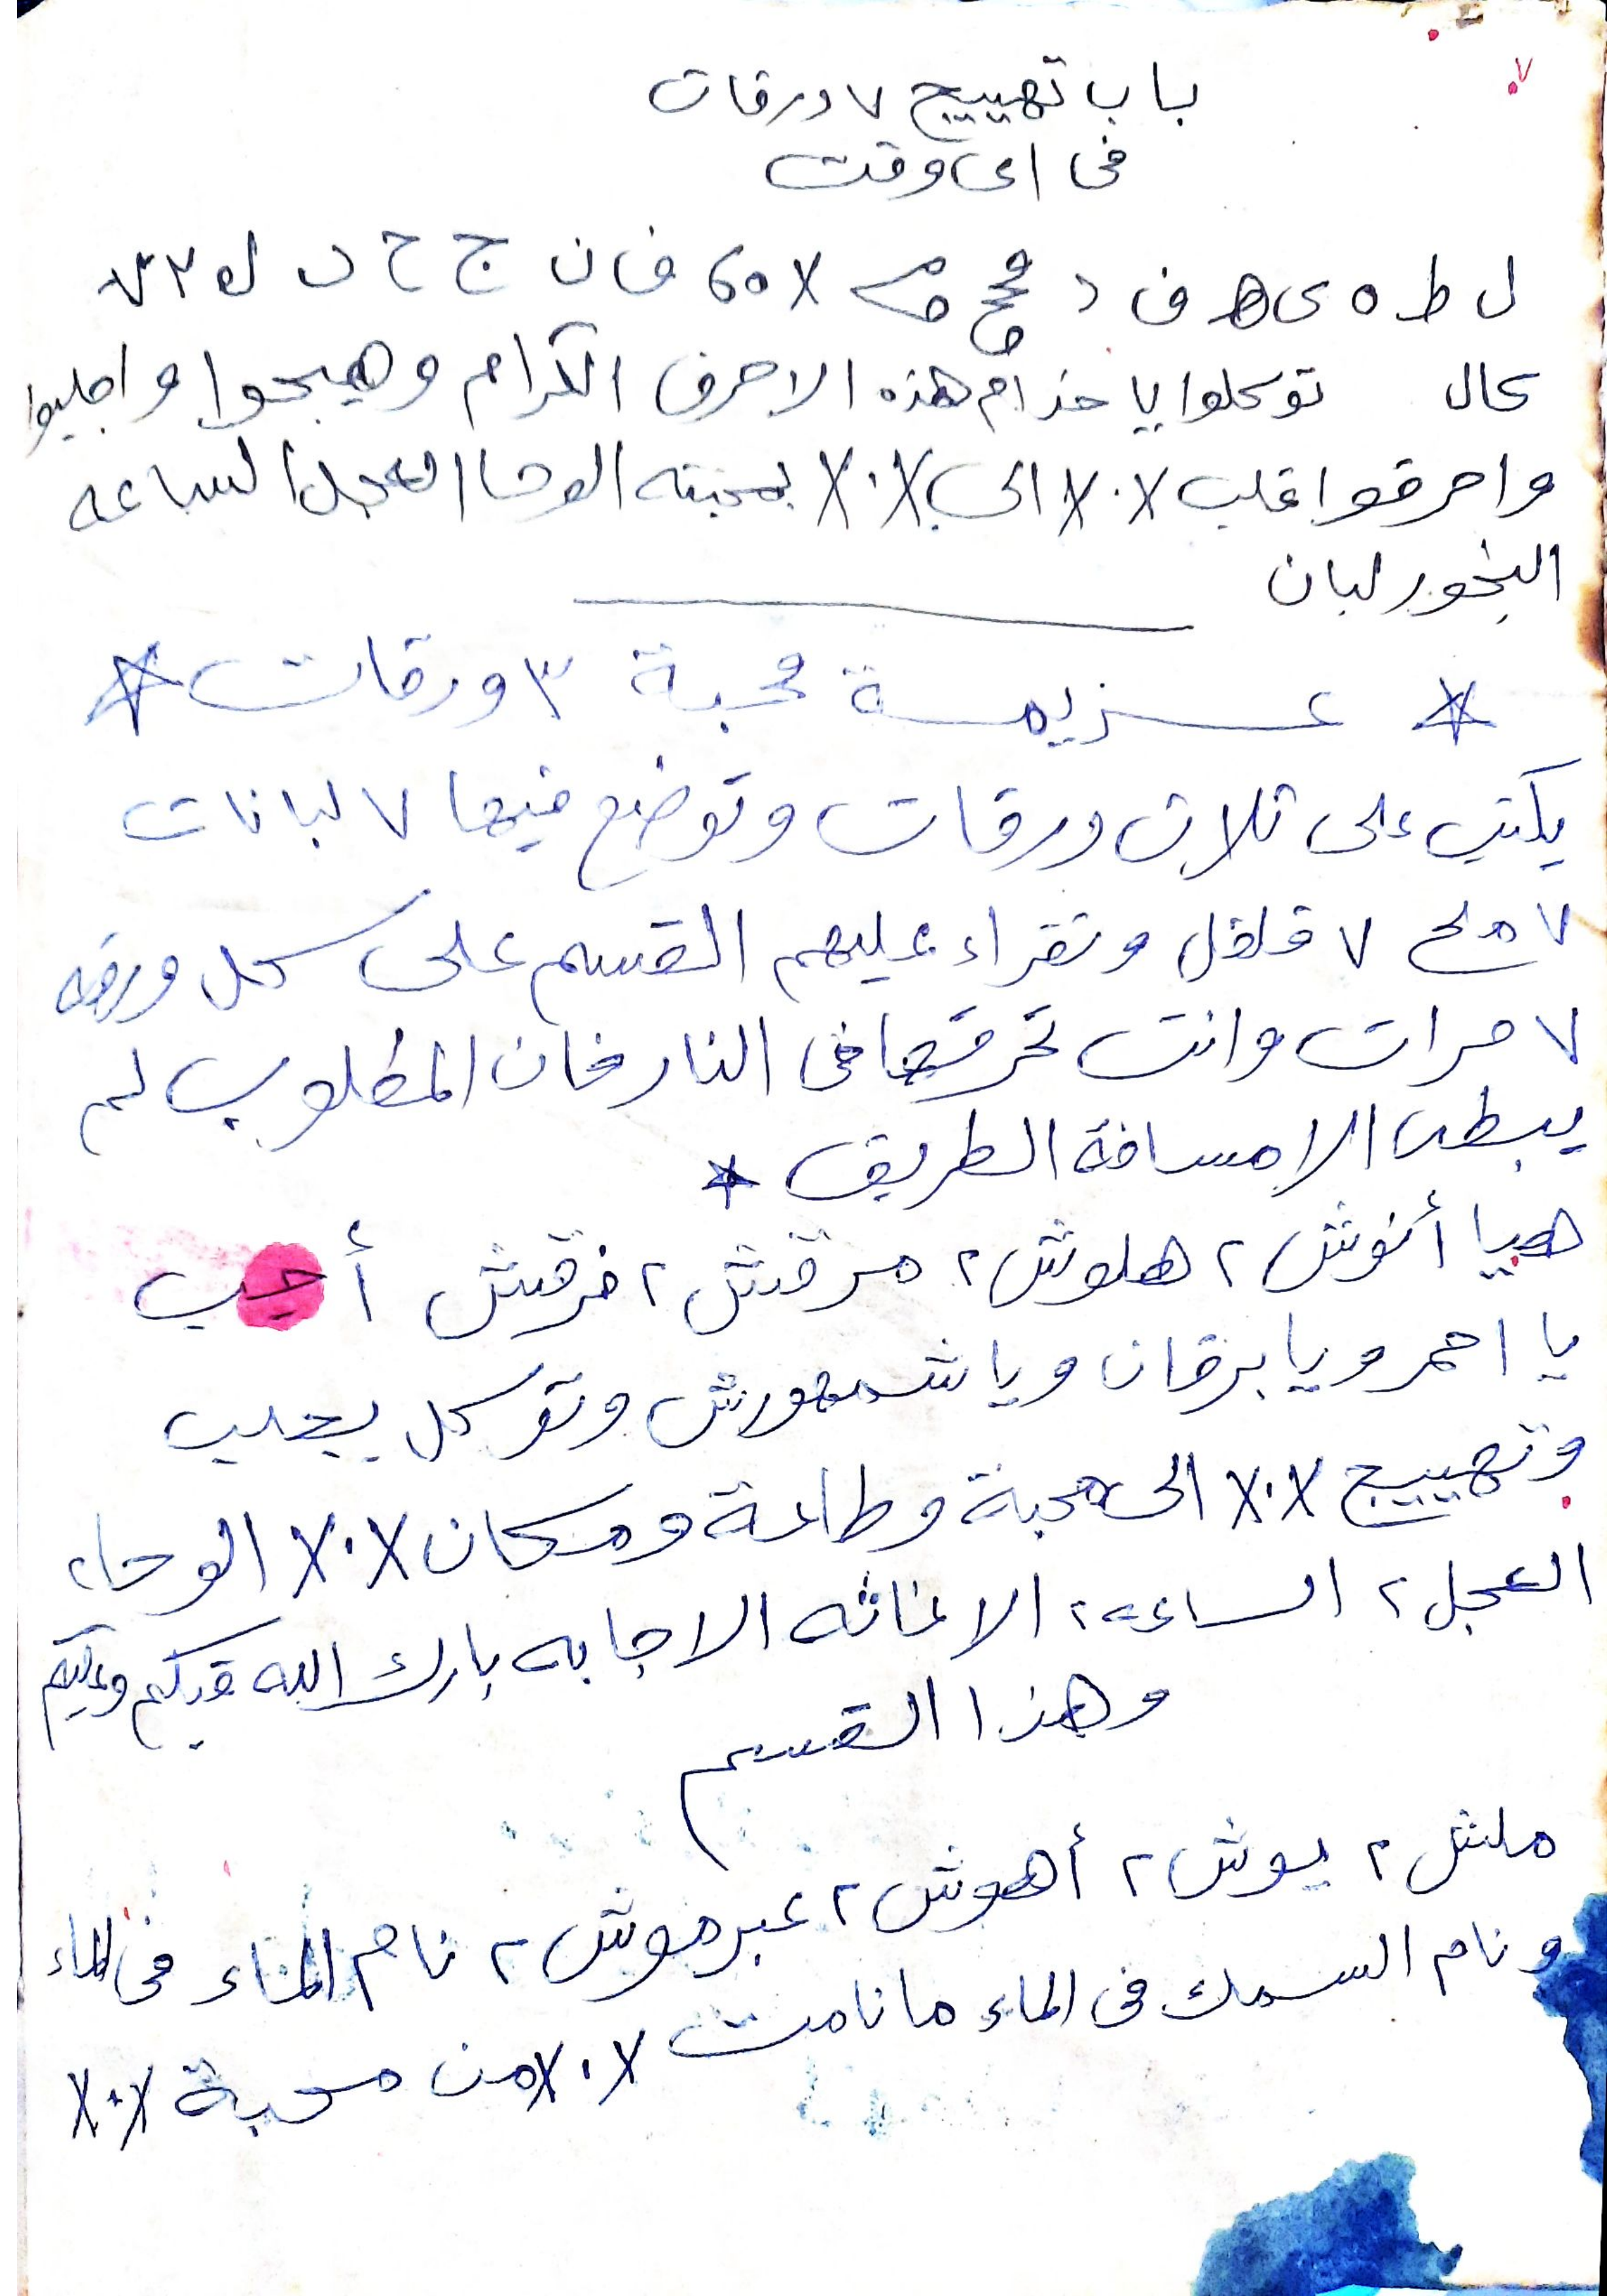 ٧
باب تهييج ٧ ورقات
فى اى وقت
ل ط ه ى ھ ف د ن ج ح
كال توكلوا يا خدام هذه الاحرف الكرام وهيجوا واجلبوا
واحرقوا قلب X.X الى X.X بمحبته الوحا العجل الساعه
البخور لبان
عزيمة محبة ٣ ورقات
يكتب على ثلاث ورقات وتوضع فيها ٧ لبانات
٧ ملح ٧ فلفل وتقراء عليهم القسم على كل ورقه
٧ مرات وانت تحرقها فى النار فان المطلوب لم
يبطى الا مسافة الطريق
هيا أنوش ٢ هلوش ٢ مرقش ٢ فرقش أجب
يا احمر ويا برقان ويا شمهورش وتوكل بجلب
وتهييج X.X الى محبة وطاعة ومكان X.X الوحا ٢
العجل ٢ الساعة ٢ الاغاثه الاجابه بارك الله فيكم وعليكم
وهذا القسم
ملش ٢ يوش ٢ أهوش ٢ عبرموش ٢ نام الماء فى الماء
ونام السمك فى الماء ما نامت X.X من محبة X.X